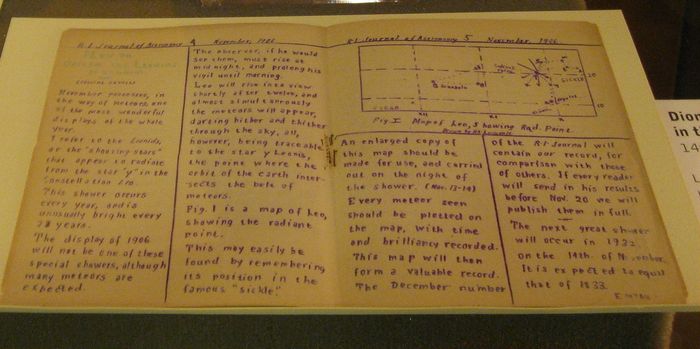 R.I. Journal of Astronomy 4 November, 1906
How to
Observe the Leonids
November possesses, in
the way of meteors, one
of the most wonderful
displays of the whole
year.
I refer to the Leonids,
or the "shooting stars"
that appear to radiate
from the star "γ" in the
constellation Leo.
This shower occurs
every year, and is
unusually bright every
years.
The display of 1906
will not be one of these
special showers, although
many meteors are
expected.
The observer, if he would
see them, must rise at
midnight, and prolong his
vigil until morning.
Leo will rise into view
shortly after twelve, and
almost simultaneously
the meteors will appear,
darting hither and thither
through the sky, all,
however, being traceable
to the star γ Leonis,
the point where the
orbit of the earth inter-
sects the belt of
meteors.
Fig. I is a map of Leo,
showing the radiant
point.
This may easily be
found by remembering
its position in the
famous "sickle."
R.I. Journal of Astronomy 5 November, 1906
SICKLE
20
10
XI
X
Fig. I Map of Leo, Showing Rad. Point
Drawn by H.P. Lovecraft
An enlarged copy of
this map should be
made for use, and carried
out on the night of
the shower. (Nov. 13-14)
Every meteor seen
should be plotted on
the map, with time
and brilliancy recorded.
This map will then
form a valuable record.
The December number
of the R.I. Journal will
contain our record, for
comparison with those
of others. If every reader
will send in his results
before Nov. 20 we will
publish them in full.
The next great shower
will occur in 1932,
on the 14th. of November.
It is expected to equal
that of 1833.
Dion
in t
14
L